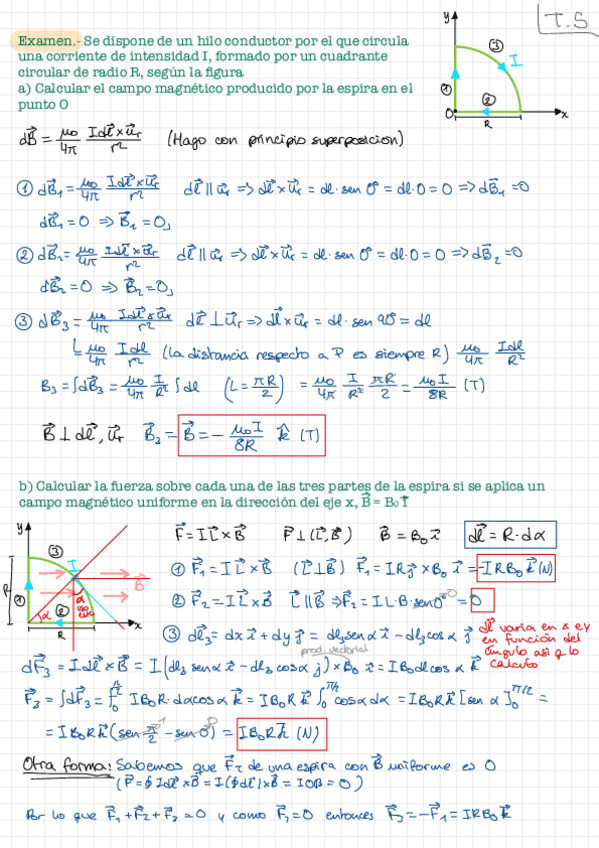 T.5
Examen.- Se dispone de un hilo conductor por el que circula
una corriente de intensidad I, formado por un cuadrante
circular de radio R, según la figura
a) Calcular el campo magnético producido por la espira en el
punto O
y ③ I ① ② O R x
dB⃗ = μ₀/4π · Idl⃗ × u⃗r / r² (Hago con principio superposicion)
① dB⃗₁ = μ₀/4π · Idl⃗ × u⃗r / r² dl⃗ ∥ u⃗r => dl⃗ × u⃗r = dl · sen 0° = dl · 0 = 0 => dB⃗₁ = 0
dB⃗₁ = 0 => B⃗₁ = 0,
② dB⃗₂ = μ₀/4π · Idl⃗ × u⃗r / r² dl⃗ ∥ u⃗r => dl⃗ × u⃗r = dl · sen 0° = dl · 0 = 0 => dB⃗₂ = 0
dB⃗₂ = 0 => B⃗₂ = 0,
③ dB⃗₃ = μ₀/4π · Idl⃗ × u⃗r / r² dl⃗ ⊥ u⃗r => dl⃗ × u⃗r = dl · sen 90° = dl
μ₀/4π · Idl / r² (La distancia respecto a P es siempre R) μ₀/4π · Idl / R²
B₃ = ∫dB⃗₃ = μ₀/4π · I/R² ∫dl (L = πR/2) = μ₀/4π · I/R² · πR/2 = μ₀I/8R (T)
B⃗ ⊥ dl⃗, u⃗r B⃗₃ = B⃗ = - μ₀I/8R k̂ (T)
b) Calcular la fuerza sobre cada una de las tres partes de la espira si se aplica un
campo magnético uniforme en la dirección del eje x, B⃗ = B₀ i⃗
y ③ I B⃗ R ① ② α α x R
F⃗ = I L⃗ × B⃗ F⃗ ⊥ (L⃗, B⃗) B⃗ = B₀ i⃗ dl⃗ = R · dα
① F⃗₁ = I L⃗ × B⃗ (L⃗ ⊥ B⃗) F⃗₁ = IR j⃗ × B₀ i⃗ = -IRB₀ k⃗ (N)
② F⃗₂ = I L⃗ × B⃗ L⃗ ∥ B⃗ => F⃗₂ = I L · B · sen 0° = 0
③ dl⃗₃ = dx i⃗ + dy j⃗ = dl₃ sen α i⃗ - dl₃ cos α j⃗
dl⃗ varia en x e y
en función del
ángulo asi q lo
calculo
prod. vectorial
dF⃗₃ = I dl⃗ × B⃗ = I (dl₃ sen α i⃗ - dl₃ cos α j⃗) × B₀ i⃗ = IB₀ dl cos α k⃗
F⃗₃ = ∫dF⃗₃ = ∫₀^π/2 IB₀R · dα cos α k⃗ = IB₀R k⃗ ∫₀^π/2 cos α dα = IB₀R k⃗ [sen α]₀^π/2 =
= IB₀R k⃗ (sen π/2 - sen 0) = IB₀R k⃗ (N)
Otra forma: Sabemos que F⃗T de una espira con B⃗ uniforme es 0
(F⃗ = ∮ I dl⃗ × B⃗ = I (∮ dl⃗) × B⃗ = I0B = 0)
Por lo que F⃗₁ + F⃗₂ + F⃗₃ = 0 y como F⃗₂ = 0 entonces F⃗₃ = -F⃗₁ = IRB₀ k⃗